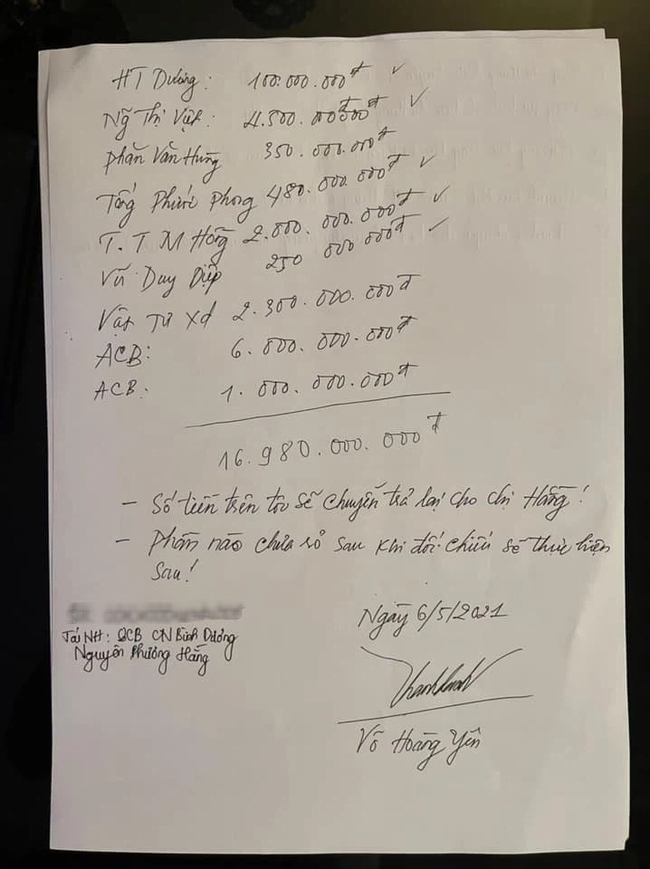 HT Dương: 100.000.000đ ✓
Ng̃ Thị Việt: 4.500.000.000đ ✓
Phan Văn Hùng 350.000.000đ
Tống Phước Phong 480.000.000đ ✓
T.T M Hồng 2.000.000.000đ ✓
Vũ Duy Diệp 250 000 000đ ✓
Vật Tư Xd 2.300.000.000đ
ACB: 6.000.000.000đ
ACB: 1.000.000.000đ
16.980.000.000đ
- Số tiền trên tôi sẽ chuyển trả lại cho chị Hằng!
- Phần nào chưa rõ sau khi đối chiếu sẽ thực hiện
sau!
Ngày 6/5/2021
Tại NH: CN Bình Dương
Nguyễn Phương Hằng
Võ Hoàng Yên